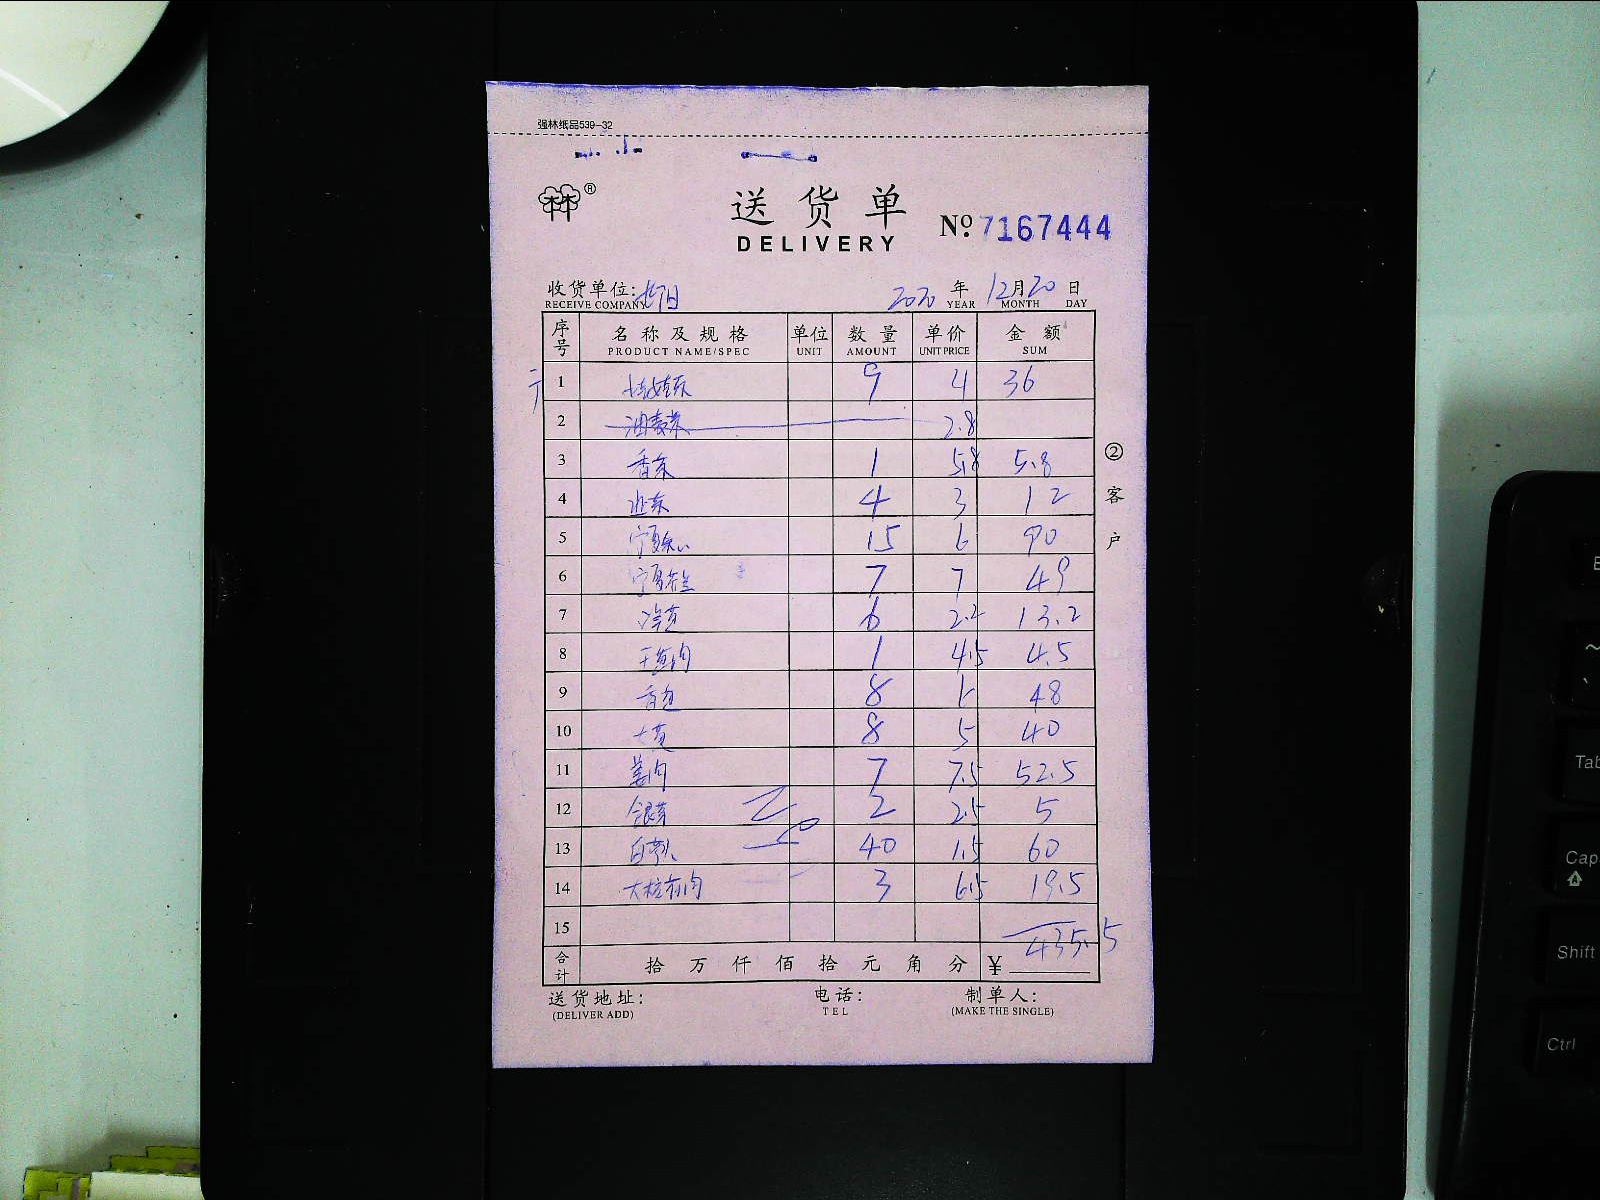 强林纸品539-32
林®
送货单
DELIVERY
№ 7167444
收货单位:
RECEIVE COMPANY
2020 年 12 月 20 日
YEAR MONTH DAY
序号 名称及规格 单位 数量 单价 金额
PRODUCT NAME/SPEC UNIT AMOUNT UNIT PRICE SUM
1 9 4 36
2 油麦菜 2.8
3 香菜 1 5.8 5.8
4 4 3 12
5 宁夏菜心 15 6 90
6 宁夏芥兰 7 7 49
7 6 2.2 13.2
8 1 4.5 4.5
9 8 48
10 8 5 40
11 姜肉 7 7.5 52.5
12 银芽 2 2.5 5
13 白萝卜 40 1.5 60
14 3 6.5 19.5
15
435.5
合计 拾 万 仟 佰 拾 元 角 分 ¥
送货地址: 电话: 制单人:
(DELIVER ADD) TEL (MAKE THE SINGLE)
②客户
Tab
Caps
Shift
Ctrl